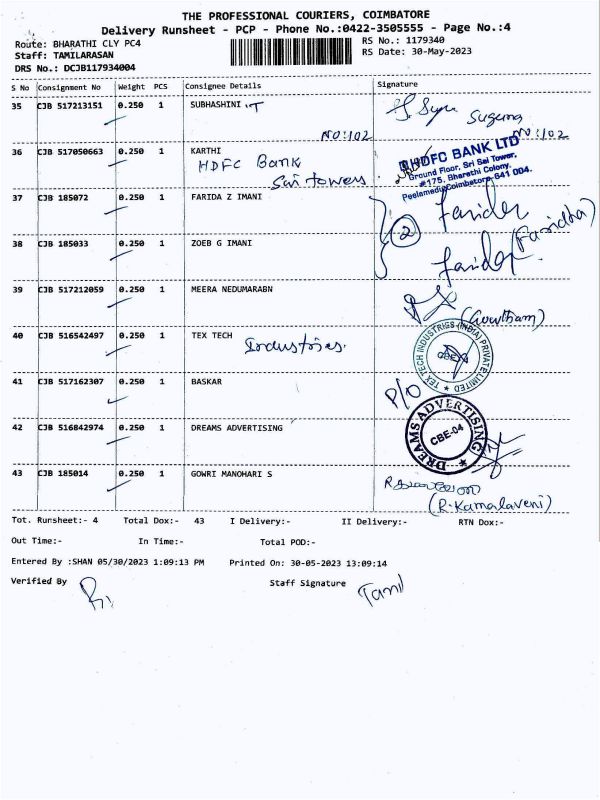 THE PROFESSIONAL COURIERS, COIMBATORE
Delivery Runsheet - PCP - Phone No.:0422-3505555 - Page No.:4
Route: BHARATHI CLY PC4
RS No.: 1179340
Staff: TAMILARASAN
RS Date: 30-May-2023
DRS No.: DCJB117934004
S No Consignment No Weight PCS Consignee Details Signature
35 CJB 517213151 0.250 1 SUBHASHINI .T
Suguna
NO:102 NO:102
36 CJB 517050663 0.250 1 KARTHI
HDFC Bank
Sai towers
HDFC BANK LTD
Ground Floor, Sri Sai Tower,
#175, Bharathi Colony,
Peelamedu, Coimbatore-641 004.
37 CJB 185072 0.250 1 FARIDA Z IMANI
2
(Faridha)
38 CJB 185033 0.250 1 ZOEB G IMANI
39 CJB 517212059 0.250 1 MEERA NEDUMARABN
(Gowtham)
40 CJB 516542497 0.250 1 TEX TECH
Industries.
TEX TECH INDUSTRIES (INDIA) PRIVATE LIMITED
CBE
41 CJB 517162307 0.250 1 BASKAR
P/O
42 CJB 516842974 0.250 1 DREAMS ADVERTISING
DREAMS ADVERTISING
CBE-04
43 CJB 185014 0.250 1 GOWRI MANOHARI S
(R.Kamalaveni)
Tot. Runsheet:- 4 Total Dox:- 43 I Delivery:- II Delivery:- RTN Dox:-
Out Time:- In Time:- Total POD:-
Entered By :SHAN 05/30/2023 1:09:13 PM Printed On: 30-05-2023 13:09:14
Verified By Staff Signature Tamil